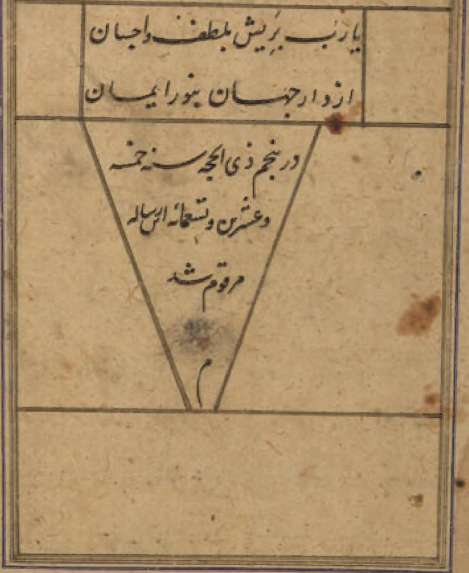 یا رب بریش بلطف و احسان
از دار جهان بنور ایمان
در پنجم ذی الحجه سنه خمسه
و عشرین و تسعمائه این رساله
مرقوم شد
م